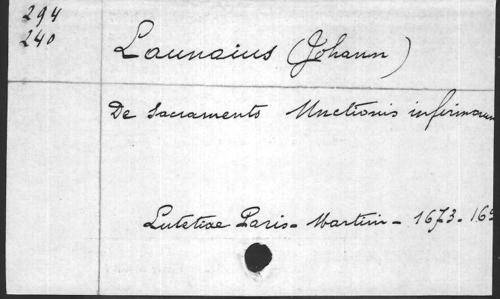 294
240
Launoius (Johann)
De Sacramento Unctionis infirmorum
Lutetiae Paris- Martin- 1673- 16